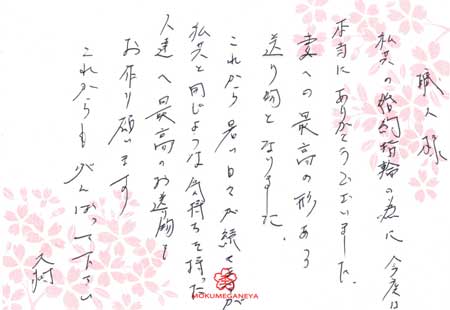 職人様
私共の婚約指輪の為に今度は
本当にありがとうございました。
妻への最高の形ある
送り物となりました。
これから暑い日々が続きますが
私共と同じような気持ちを持った
人達へ最高のお送り物を
お作り願います
これからもがんばって下さい
MOKUMEGANEYA